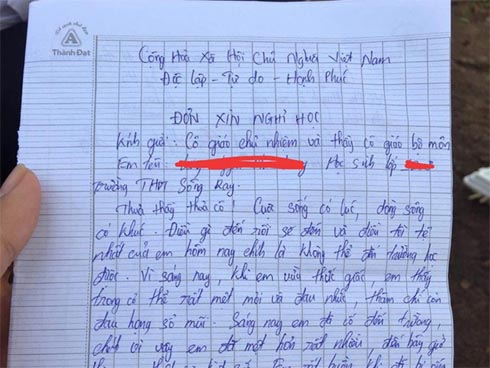 Thành Đạt
Cộng Hoà Xã Hội Chủ Nghĩa Việt Nam
Độc lập - Tự do - Hạnh Phúc
ĐƠN XIN NGHỈ HỌC
Kính gửi: Cô giáo chủ nhiệm và thầy cô giáo bộ môn
Em tên: Học sinh lớp
trường THPT Sông Ray.
Thưa thầy thưa cô! Cuộc sống có lúc, dòng sông
có khúc. Điều gì đến rồi sẽ đến và điều tồi tệ
nhất của em hôm nay chính là không thể đến trường học
được. Vì sáng nay, khi em vừa thức giấc, em thấy
trong cơ thể rất mệt mỏi và đau nhức, thậm chí còn
đau họng sổ mũi. Sáng nay em đã cố đến trường,
chính vì vậy em đã mệt hơn rất nhiều đến bây giờ